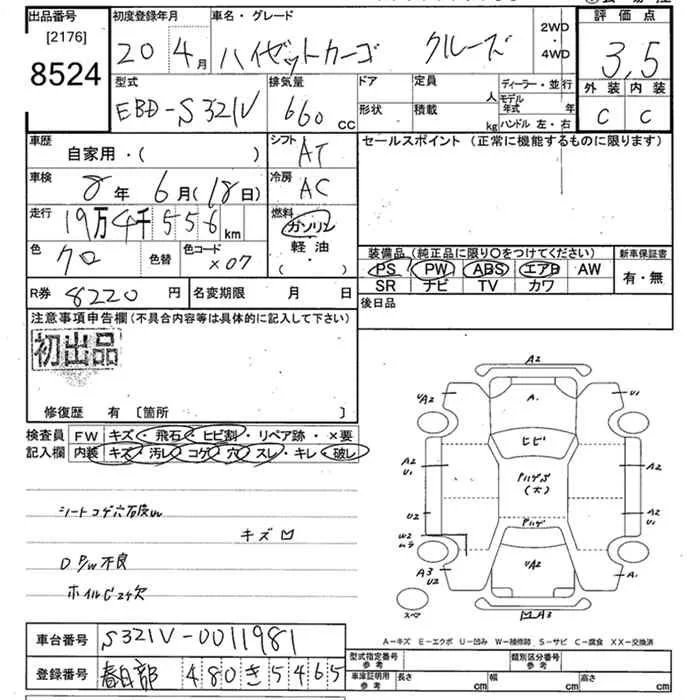 出品番号 [2176] 8524
初度登録年月 20年 4月
車名・グレード ハイゼットカーゴ クルーズ
2WD・4WD
評価点 3.5
外装 C 内装 C
型式 EBD-S321V
排気量 660 cc
ドア 形状
定員 人
積載 kg
ディーラー・並行
モデル年式 年
ハンドル 左・右
車歴 自家用・( )
シフト AT
セールスポイント (正常に機能するものに限ります)
車検 8年 6月(18日)
冷房 AC
走行 19万4千556km
燃料 ガソリン・軽油・( )
色 クロ 色替
色コード X07
装備品(純正品に限り〇をつけてください)
PS PW ABS エアB AW
SR ナビ TV カワ
新車保証書 有・無
R券 8220円
名変期限 月 日
後日品
注意事項申告欄(不具合内容等は具体的に記入して下さい)
初出品
修復歴 有 〔箇所 〕
検査員記入欄
FW キズ・飛石・ヒビ割・リペア跡・×要
内装 キズ・汚レ・コゲ・穴・スレ・キレ・破レ
シートコゲ穴
キズ凹
D P/W不良
A2
UA2 A. U1
ヒビ
A2 U1 A2
U2 A2 U1
W2
ハゲ
A3 U2 UA2 A1
スペア
A3
A-キズ E-エクボ U-凹み W-補修跡 S-サビ C-腐食 XX-交換済
車台番号 S321V-0011981
登録番号 春日部 480 き 5465
型式指定番号 参考
類別区分番号 参考
車庫証明用 参考 長さ cm 幅 cm 高さ cm